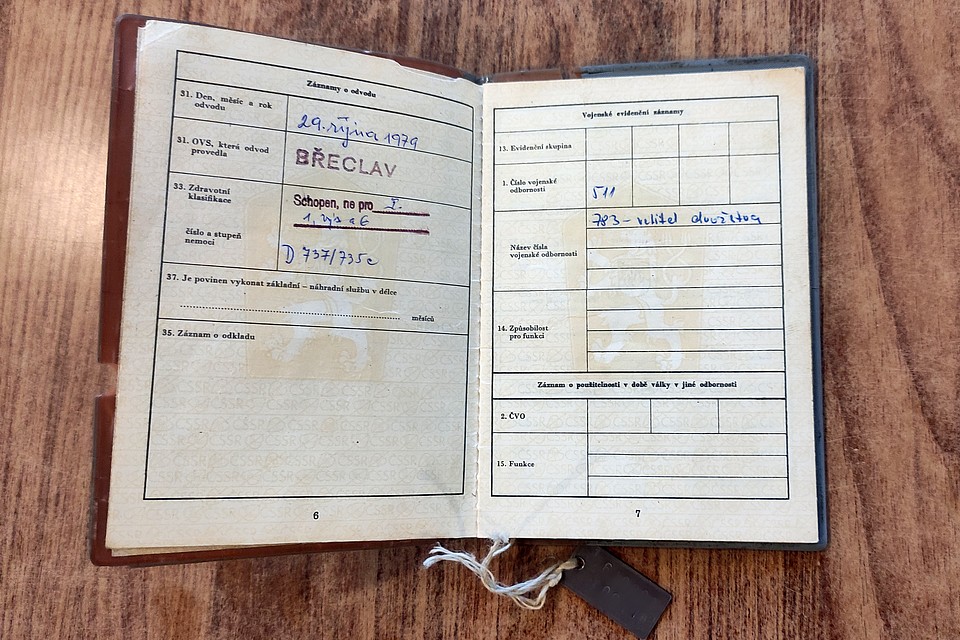 Záznamy o odvodu
31. Den, měsíc a rok
odvodu
29. října 1979
31. OVS, která odvod
provedla
BŘECLAV
33. Zdravotní
klasifikace
Schopen, ne pro I.
číslo a stupeň
nemoci
D 737/735c
37. Je povinen vykonat základní – náhradní službu v délce
měsíců
35. Záznam o odkladu
6
Vojenské evidenční záznamy
13. Evidenční skupina
1. Číslo vojenské
odbornosti
511
783 – velitel družstva
Název čísla
vojenské odbornosti
14. Způsobilost
pro funkci
Záznam o použitelnosti v době války v jiné odbornosti
2. ČVO
15. Funkce
7